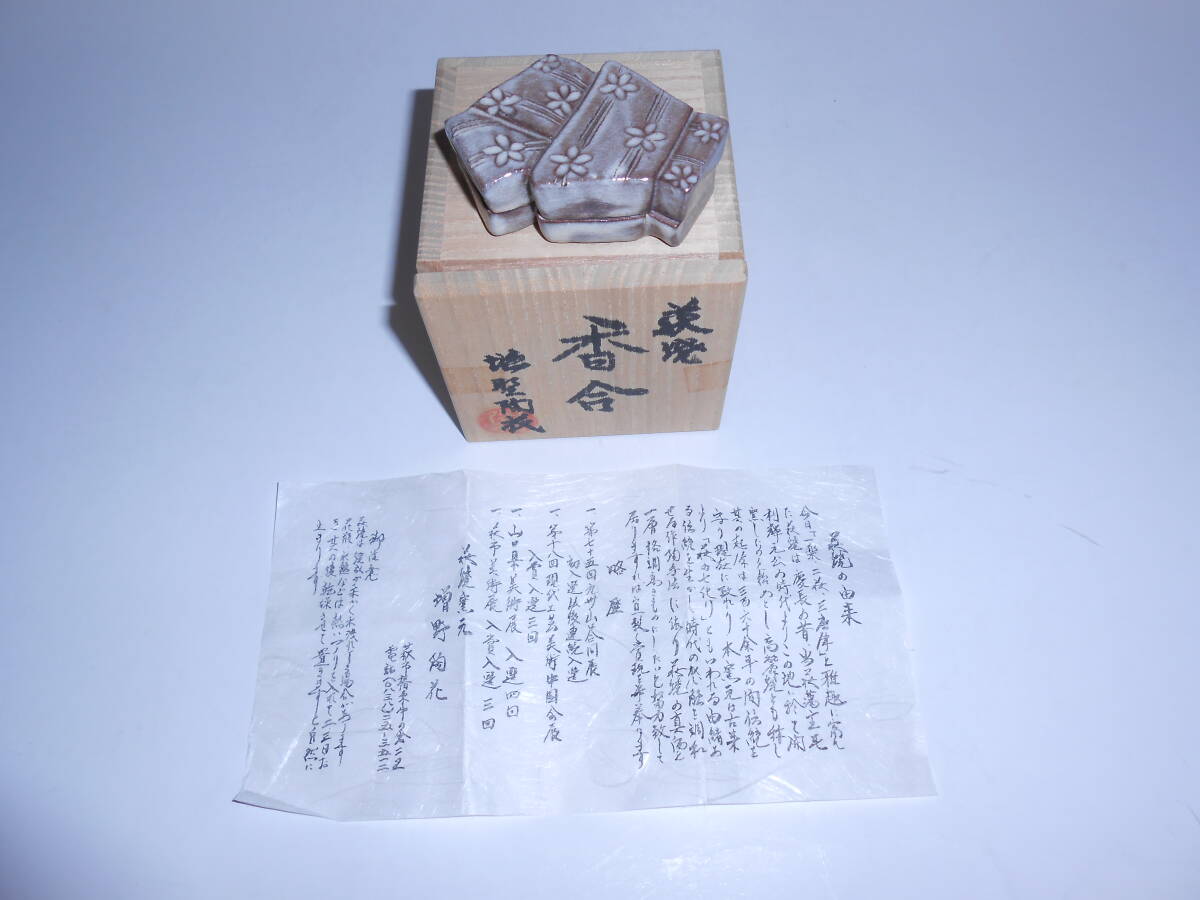 萩焼
香合
増野陶花
萩焼の由来
今日「一楽、二萩、三唐津」と雅趣に富ん
だ萩焼は慶長の昔、当萩藩主毛
利輝元公の時代よりこの地に於て開
窯したのを始めとし、高麗焼とも称し
其の起源は三百六十余年の間伝統を
守り現在に至れり、本窯元は古来
より「萩の七化け」ともいわれる由緒あ
る伝統を生かし、時代の感能と調和
せる作陶手法に依り萩焼の真価を
一層格調高きものにしたいと努力致して
居りますれば
略歴
一、第七十五回九州山口合同展
初入選以後連続入選
一、第十八回現代工芸美術中国会展
入賞入選三回
一、山口県美術展 入選四回
一、萩市美術展 入賞入選三回
萩焼窯元
増野陶花
萩市椿東中の倉
電話
御注意
萩焼は釉秞が柔かく水洩れする場合があります
花瓶、水盤などは熱いフノリを入れて二、三日お
き、其の後乾燥させて置きますと自然に
止まります